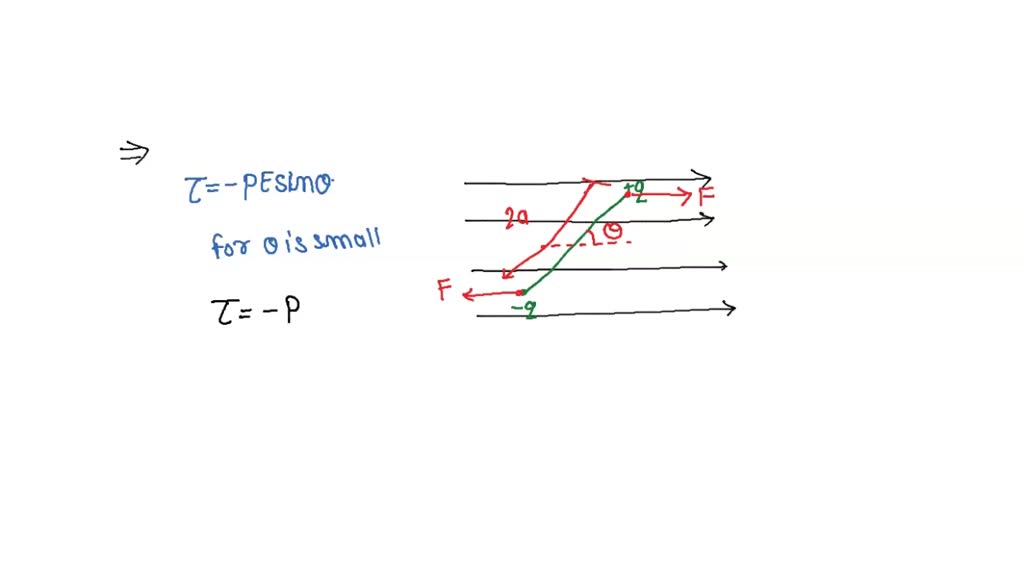 ⇒
τ=-PEsinθ
for θ is small
τ=-P
2a
+q
F
θ
F
-q